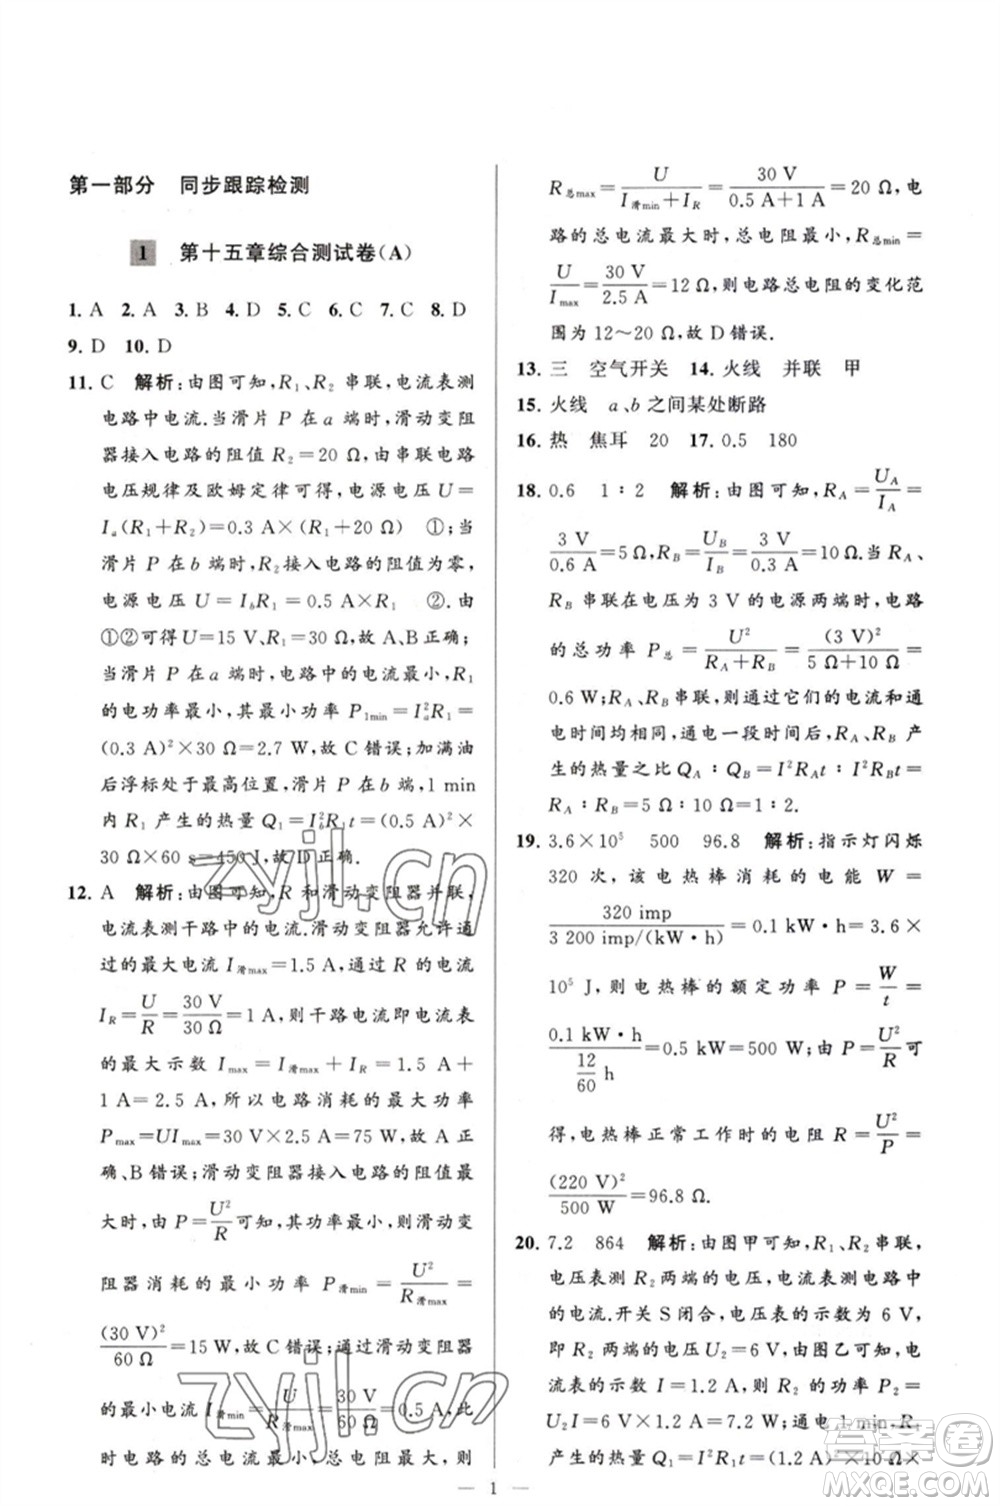 第一部分 同步跟踪检测
1 第十五章综合测试卷(A)
1. A 2. A 3. B 4. D 5. C 6. C 7. C 8. D
9. D 10. D
11. C 解析:由图可知,R₁、R₂ 串联,电流表测
电路中电流.当滑片 P 在 a 端时,滑动变阻
器接入电路的阻值 R₂=20 Ω,由串联电路
电压规律及欧姆定律可得,电源电压 U=
Iₐ(R₁+R₂)=0.3 A×(R₁+20 Ω) ①;当
滑片 P 在 b 端时,接入电路的阻值为零,
电源电压 U=I_bR₁=0.5 A×R₁ ②.由
①②可得U=15 V、R₁=30 Ω,故 A、B正确;
当滑片 P 在 a 端时,电路中电流最小,R₁
的电功率最小,其最小功率 P₁min=Iₐ²R₁=
(0.3 A)²×30 Ω=2.7 W,故 C 错误;加满油
后浮标处于最高位置,滑片 P 在 b 端,1 min
内 R₁ 产生的热量 Q₁=I_b²R₁t=(0.5 A)²×
30 Ω×60 s=450 J,故D正确.
12. A 解析:由图可知,R 和滑动变阻器并联,
电流表测干路中的电流.滑动变阻器允许通
过的最大电流 I滑max=1.5 A,通过 R 的电流
I_R=U/R=30 V/30 Ω=1 A,则干路电流即电流表
的最大示数 Imax=I滑max+I_R=1.5 A+
1 A=2.5 A,所以电路消耗的最大功率
Pmax=UImax=30 V×2.5 A=75 W,故 A 正
确、B 错误;滑动变阻器接入电路的阻值最
大时,由 P=U²/R可知,其功率最小,则滑动变
阻器消耗的最小功率 P滑min=U²/R滑max=
(30 V)²/60 Ω=15 W,故 C 错误;通过滑动变阻器
的最小电流 I滑min=U/R滑max=30 V/60 Ω=0.5 A,此
时电路的总电流最小、总电阻最大,则
R总max=U/(I滑min+I_R)=30 V/(0.5 A+1 A)=20 Ω,电
路的总电流最大时,总电阻最小,R总min=
U/Imax=30 V/2.5 A=12 Ω,电路总电阻的变化范
围为 12~20 Ω,故 D 错误.
13. 三 空气开关 14. 火线 并联 甲
15. 火线 a、b 之间某处断路
16. 热 焦耳 20 17. 0.5 180
18. 0.6 1∶2 解析:由图可知,R_A=U_A/I_A=
3 V/0.6 A=5 Ω,R_B=U_B/I_B=3 V/0.3 A=10 Ω.当 R_A、
R_B 串联在电压为 3 V 的电源两端时,电路
的总功率 P总=U²/(R_A+R_B)=(3 V)²/(5 Ω+10 Ω)=
0.6 W;R_A、R_B 串联,则通过它们的电流和通
电时间均相同,通电一段时间后,R_A、R_B 产
生的热量之比 Q_A∶Q_B=I²R_At∶I²R_Bt=
R_A∶R_B=5 Ω∶10 Ω=1∶2.
19. 3.6×10⁵ 500 96.8 解析:指示灯闪烁
320 次,该电热棒消耗的电能 W=
320 imp/3 200 imp/(kW·h)=0.1 kW·h=3.6×
10⁵ J,则电热棒的额定功率 P=W/t=
0.1 kW·h/(12/60 h)=0.5 kW=500 W;由 P=U²/R可
得,电热棒正常工作时的电阻 R=U²/P=
(220 V)²/500 W=96.8 Ω.
20. 7.2 864 解析:由图甲可知,R₁、R₂ 串联,
电压表测 R₂ 两端的电压,电流表测电路中
的电流.开关 S 闭合,电压表的示数为 6 V,
即 R₂ 两端的电压 U₂=6 V,由图乙可知,
电流表的示数 I=1.2 A,则 R₂ 的功率 P₂=
U₂I=6 V×1.2 A=7.2 W;通电 1 min,R₁
产生的热量 Q₁=I²R₁t=(1.2 A)²×10 Ω×
1
zyjl.cn
zyjl.cn
答案圈
MXQE.COM